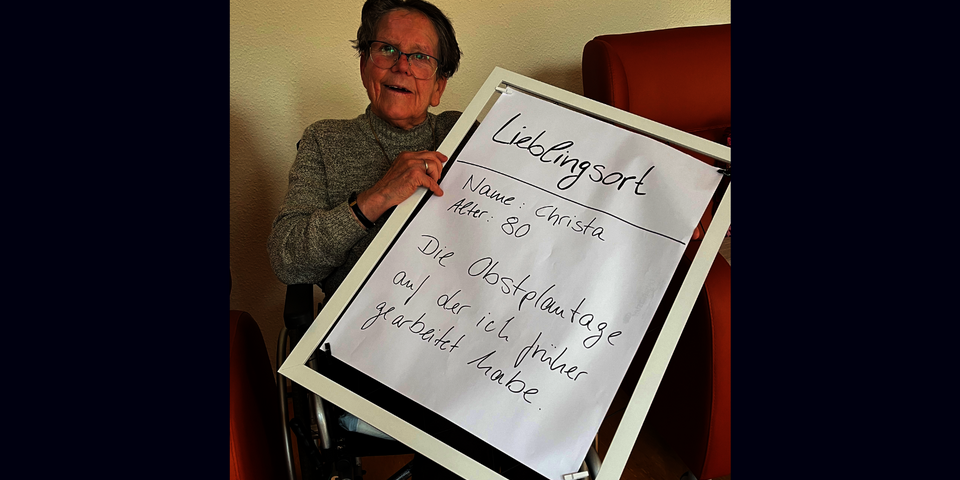 Lieblingsort
Name: Christa
Alter: 80
Die Obstplantage
auf der ich früher
gearbeitet habe.